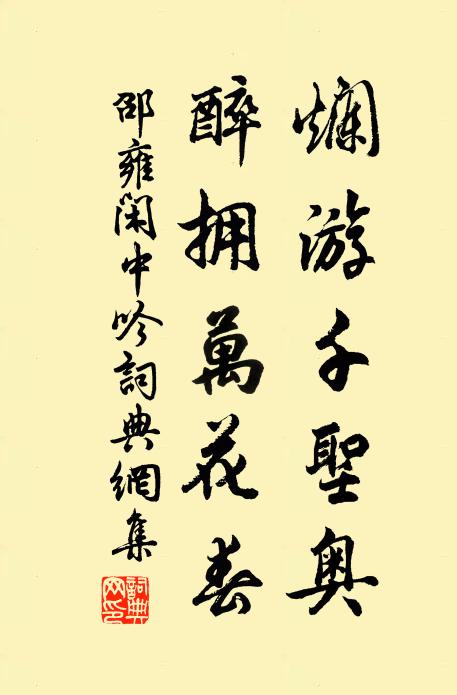 爛游千聖奥
醉拥萬花春
邵雍閑中吟詞典網集
詞典